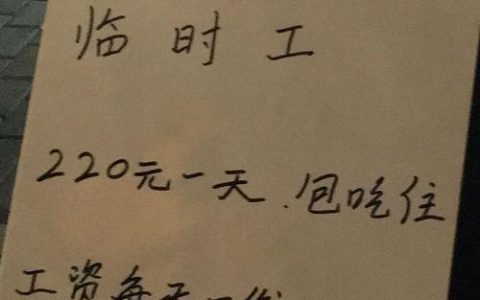 临时工
220元一天.包吃住
工资每天一